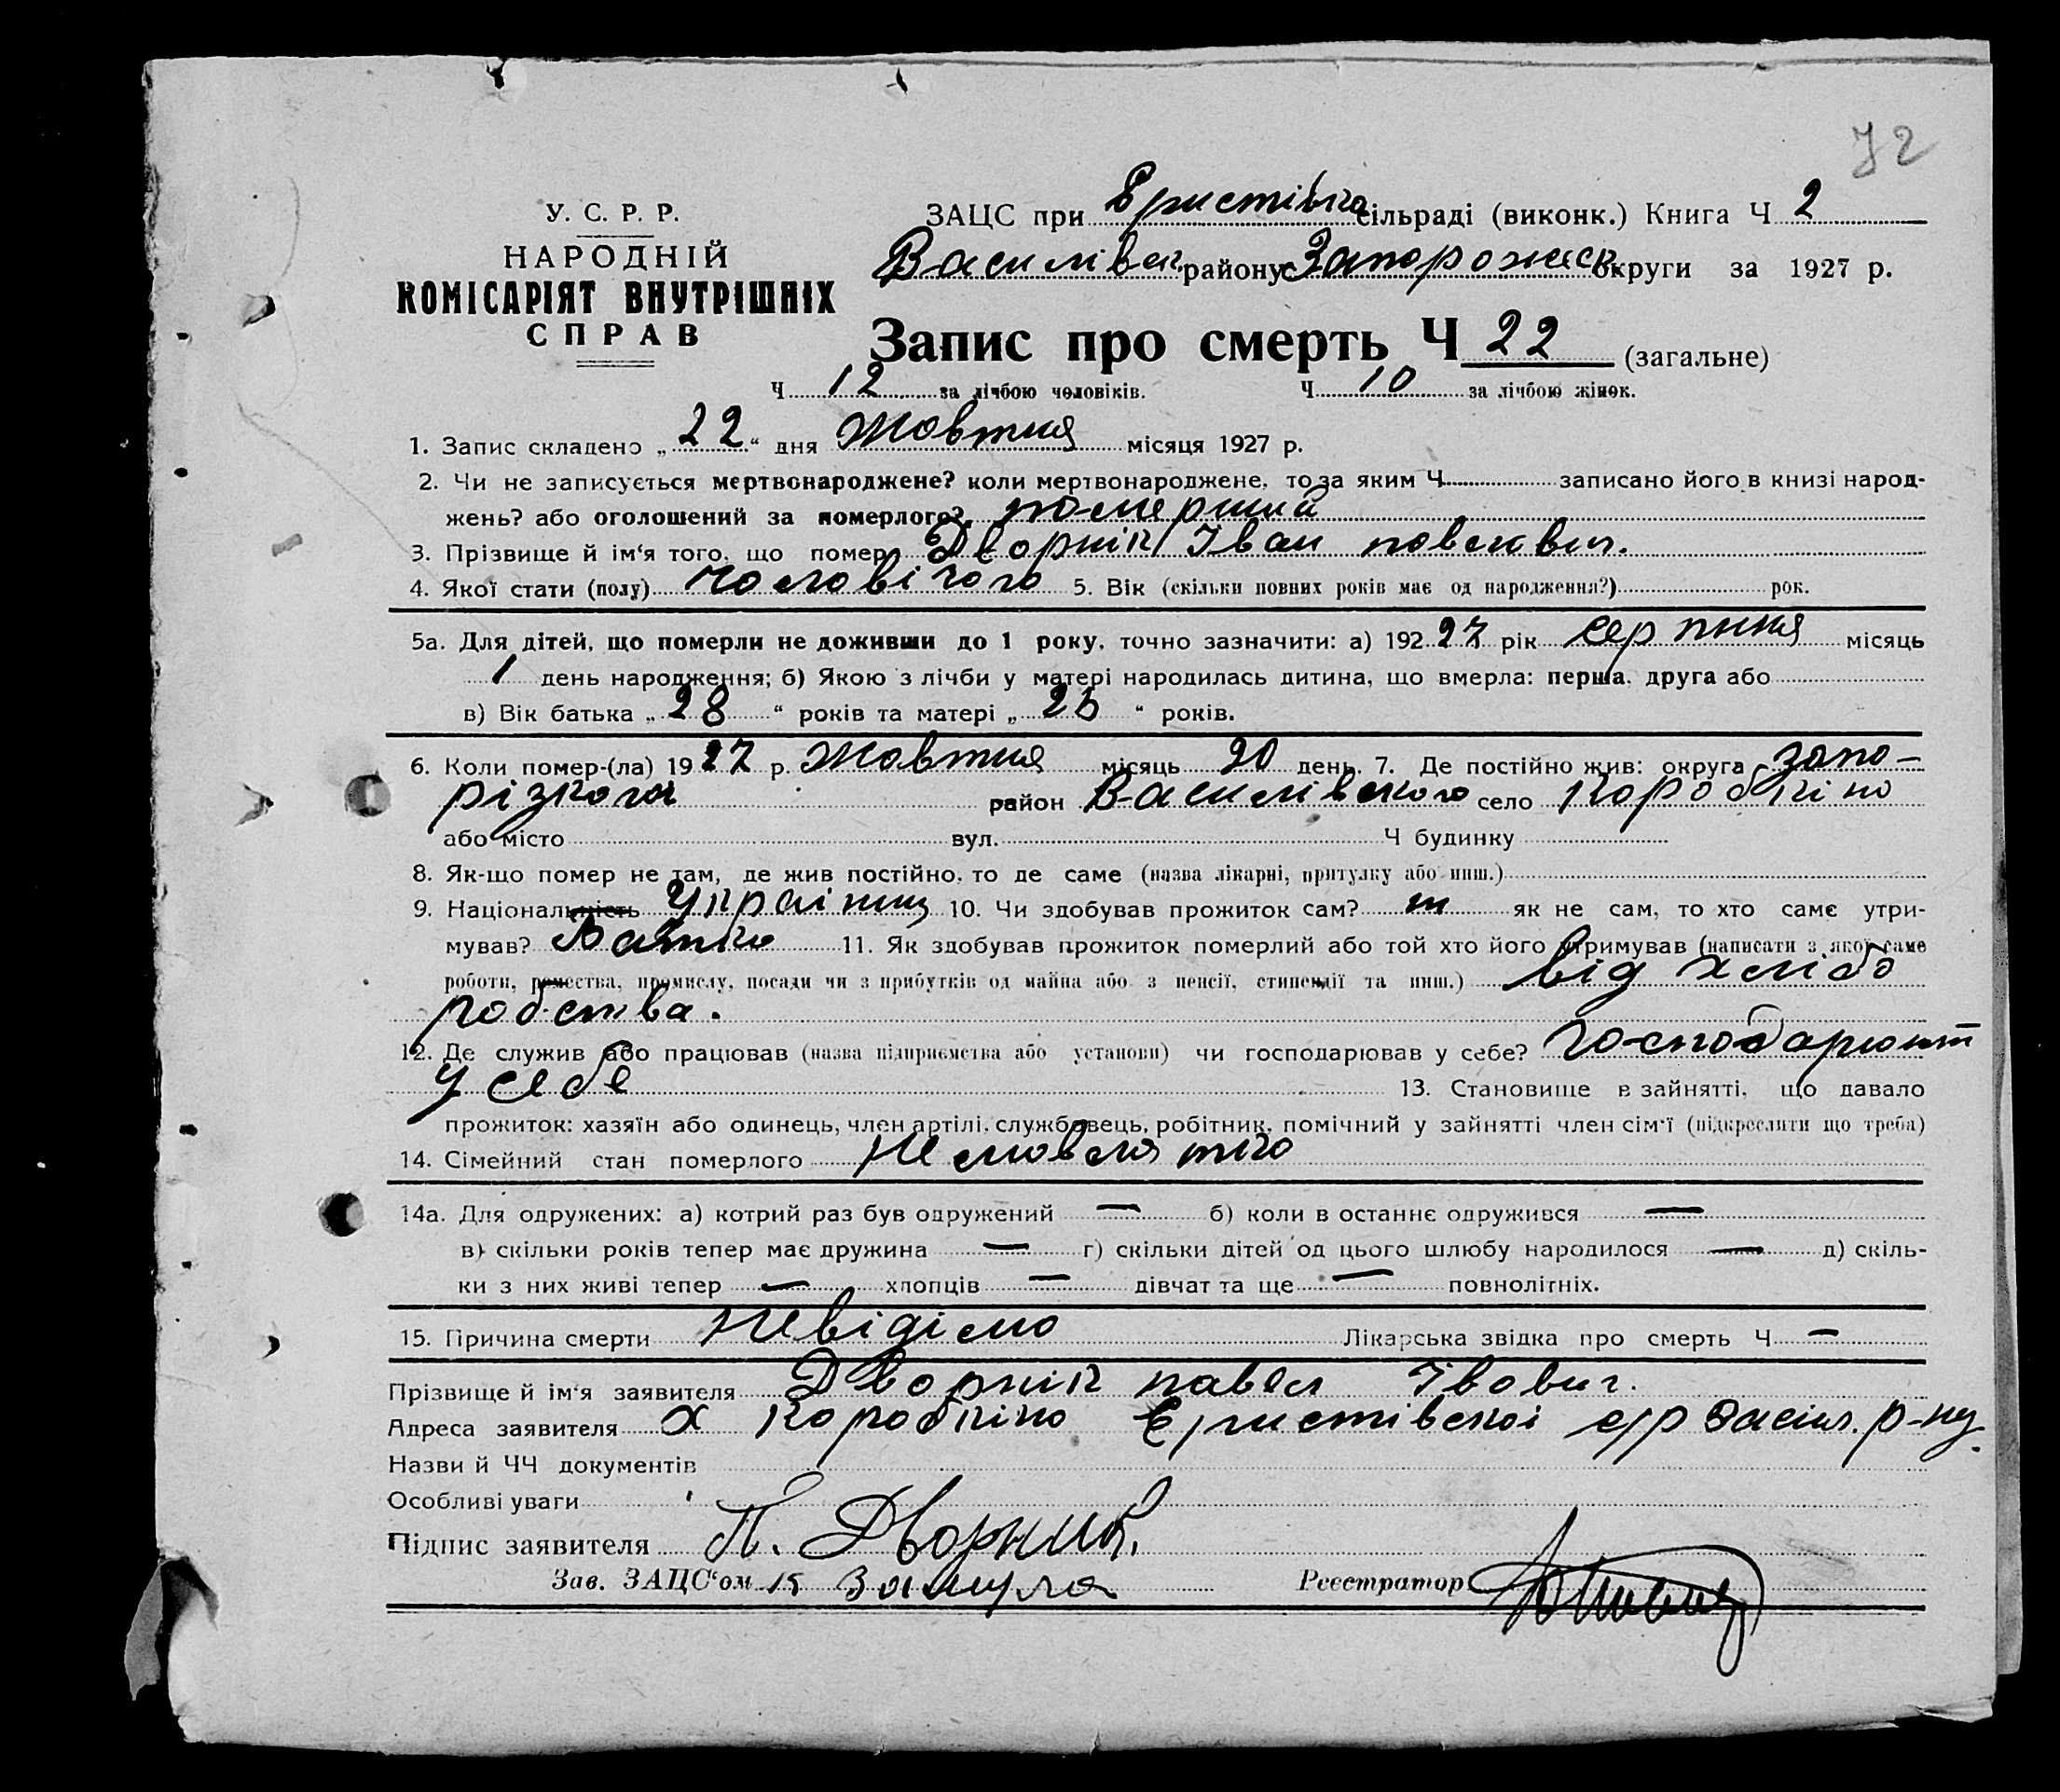 72
У. С. Р. Р.
НАРОДНІЙ
КОМІСАРІЯТ ВНУТРІШНІХ
СПРАВ
ЗАЦС при Єристівка сільраді (виконк.) Книга Ч 2
Василівськ. району Запорожськ округи за 1927 р.
Запис про смерть Ч 22 (загальне)
Ч 12 за лічбою чоловіків. Ч 10 за лічбою жінок.
1. Запис складено „ 22 “ дня Жовтня місяця 1927 р.
2. Чи не записується мертвонароджене? коли мертвонароджене, то за яким Ч записано його в книзі народ-
жень? або оголошений за померлого? померший
3. Прізвище й ім‘я того, що помер Дворнік Іван
4. Якої стати (полу) чоловічого 5. Вік (скільки повних років має од народження?) рок.
5а. Для дітей, що померли не доживши до 1 року, точно зазначити: а) 192 27 рік серпния місяць
1 день народження; б) Якою з лічби у матері народилась дитина, що вмерла: перша, друга або
в) Вік батька „ 28 “ років та матері „ “ років.
6. Коли помер-(ла) 19 27 р. Жовтня місяць 20 день. 7. Де постійно жив: округа запо-
різкога район Василівского село Коробкіно
або місто вул. Ч будинку
8. Як-що помер не там, де жив постійно, то де саме (назва лікарні, притулку або инш.)
9. Національність Українец 10. Чи здобував прожиток сам? як не сам, то хто саме утри-
мував? Батько 11. Як здобував прожиток померлий або той хто його утримував (написати з якої саме
роботи, ремества, промислу, посади чи з прибутків од майна або з пенсії, стипендії та инш.) від хлібо
робства.
12. Де служив або працював (назва підприємства або установи) чи господарював у себе? Господарюют
у себе 13. Становище в зайнятті, що давало
прожиток: хазяїн або одинець, член артілі, службовець, робітник, помічний у зайнятті член сім‘ї (підкреслити що треба)
14. Сімейний стан померлого Немовлятко
14а. Для одружених: а) котрий раз був одружений — б) коли в останнє одружився —
в) скільки років тепер має дружина — г) скільки дітей од цього шлюбу народилося — д) скіль-
ки з них живі тепер — хлопців — дівчат та ще — повнолітніх.
15. Причина смерти Невідімо Лікарська звідка про смерть Ч —
Прізвище й ім‘я заявителя Дворнік павел Івович.
Адреса заявителя х Коробкіно Єристівскоі с/р Васил. р-ну.
Назви й ЧЧ документів
Особливі уваги
Підпис заявителя П. Дворник.
Зав. ЗАЦС‘ом Реєстратор